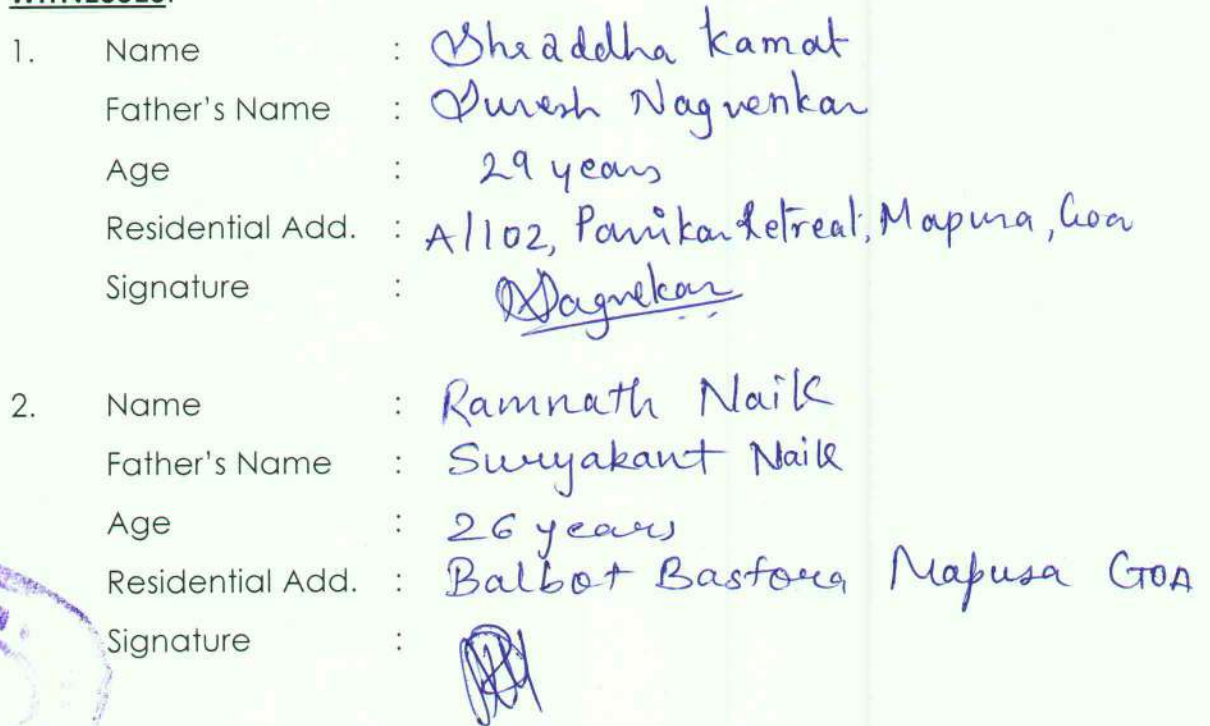 WITNESSES:
1. Name : Shraddha Kamat
Father's Name : Suresh Nagvenkar
Age : 29 years
Residential Add. : A/102, Retreat, Mapusa, Goa
Signature :
2. Name : Ramnath Naik
Father's Name : Suryakant Naik
Age : 26 years
Residential Add. : Balbot Bastora Mapusa GOA
Signature :